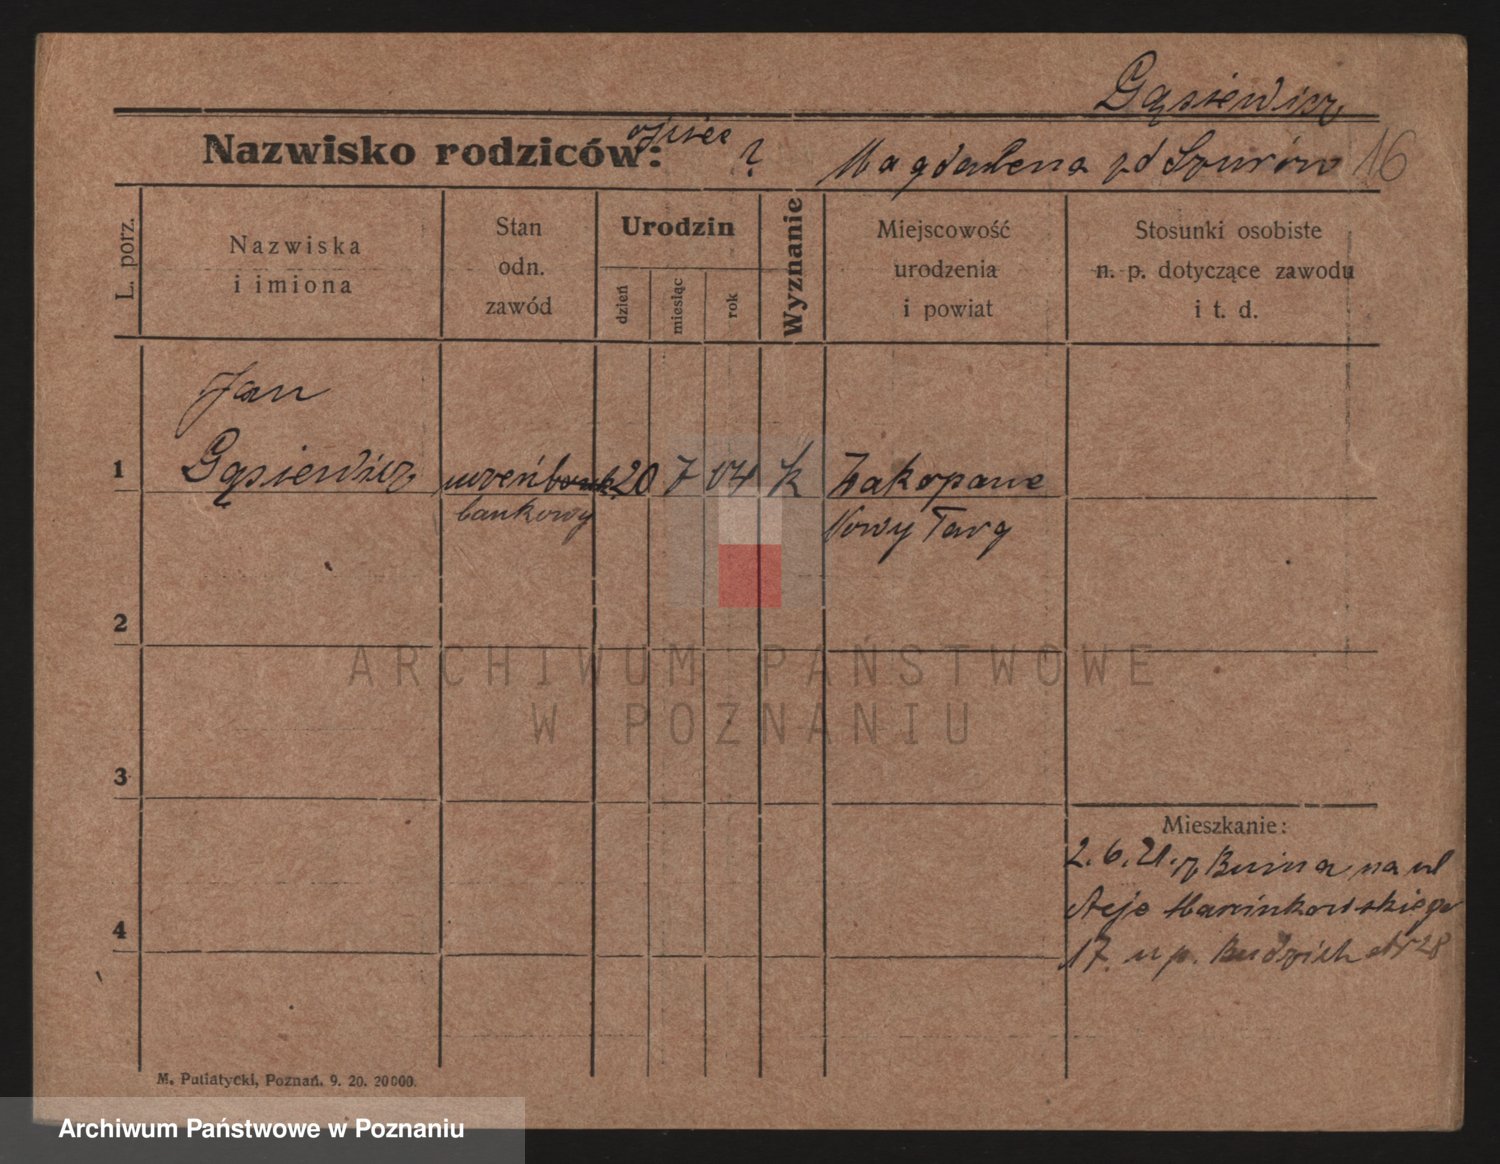 Gąsiewicz
Nazwisko rodziców: ojciec ? Magdalena zd Szurów 16
L. porz.
Nazwiska
i imiona
Stan
odn.
zawód
Urodzin
dzień
miesiąc
rok
Wyznanie
Miejscowość
urodzenia
i powiat
Stosunki osobiste
n. p. dotyczące zawodu
i t. d.
Jan
1 Gąsiewicz uczeń bank. 20 7 04 k Zakopane
bankowy Nowy Targ
2
ARCHIWUM PAŃSTWOWE
W POZNANIU
3
Mieszkanie:
2.6.21. z Buina na ul
Aleje Marcinkowskiego
4
17. u p. Budzich Nr 28
M. Putiatycki, Poznań. 9. 20. 20000.
Archiwum Państwowe w Poznaniu